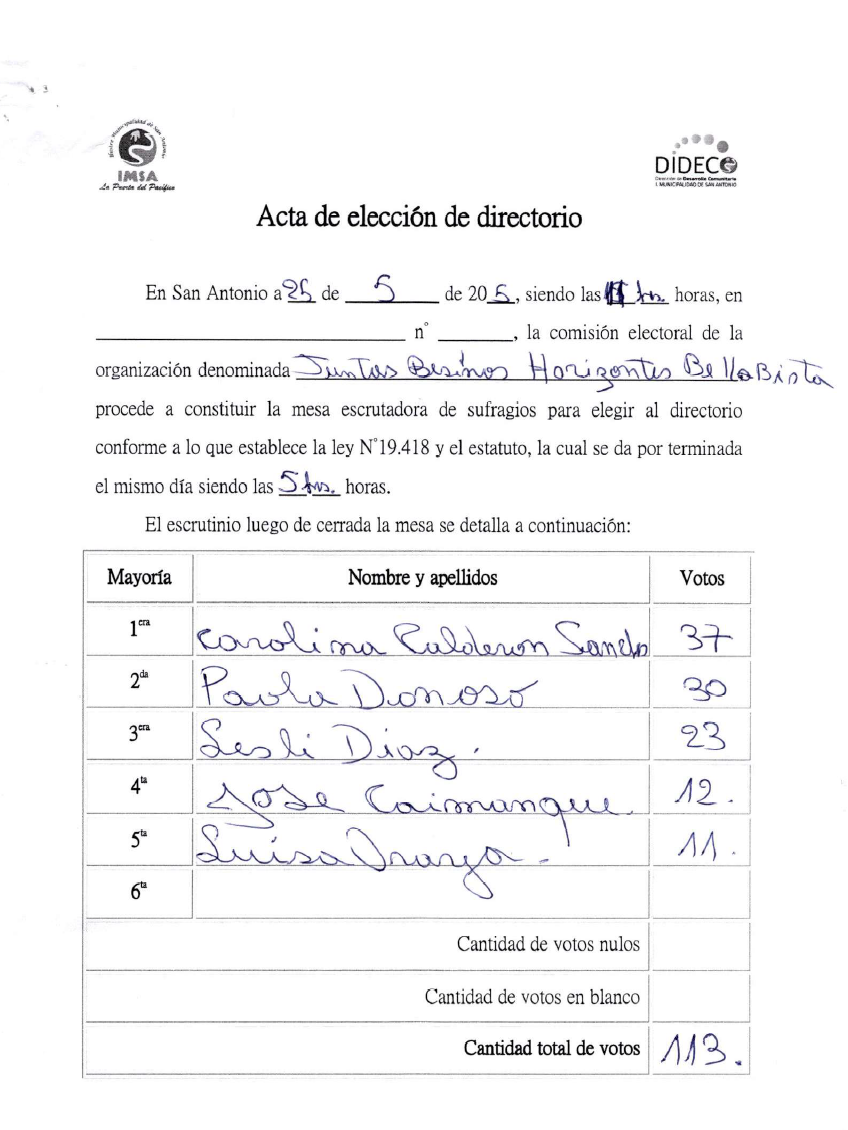 Ilustre Municipalidad de San Antonio
IMSA
La Puerta del Pacífico
DIDECO
Dirección de Desarrollo Comunitario
I. MUNICIPALIDAD DE SAN ANTONIO
Acta de elección de directorio
En San Antonio a 25 de 5 de 20 5, siendo las hrs. horas, en
n° , la comisión electoral de la
organización denominada Juntas Besinos Horizontes BellaBista
procede a constituir la mesa escrutadora de sufragios para elegir al directorio
conforme a lo que establece la ley N°19.418 y el estatuto, la cual se da por terminada
el mismo día siendo las 5 hrs. horas.
El escrutinio luego de cerrada la mesa se detalla a continuación:
Mayoría Nombre y apellidos Votos
1cra Carolina Calderon 37
2da Paola Donoso 30
3cra Lesli Diaz. 23
4ta Jose Caimanque. 12.
5ta Luisa 11.
6ta
Cantidad de votos nulos
Cantidad de votos en blanco
Cantidad total de votos 113.